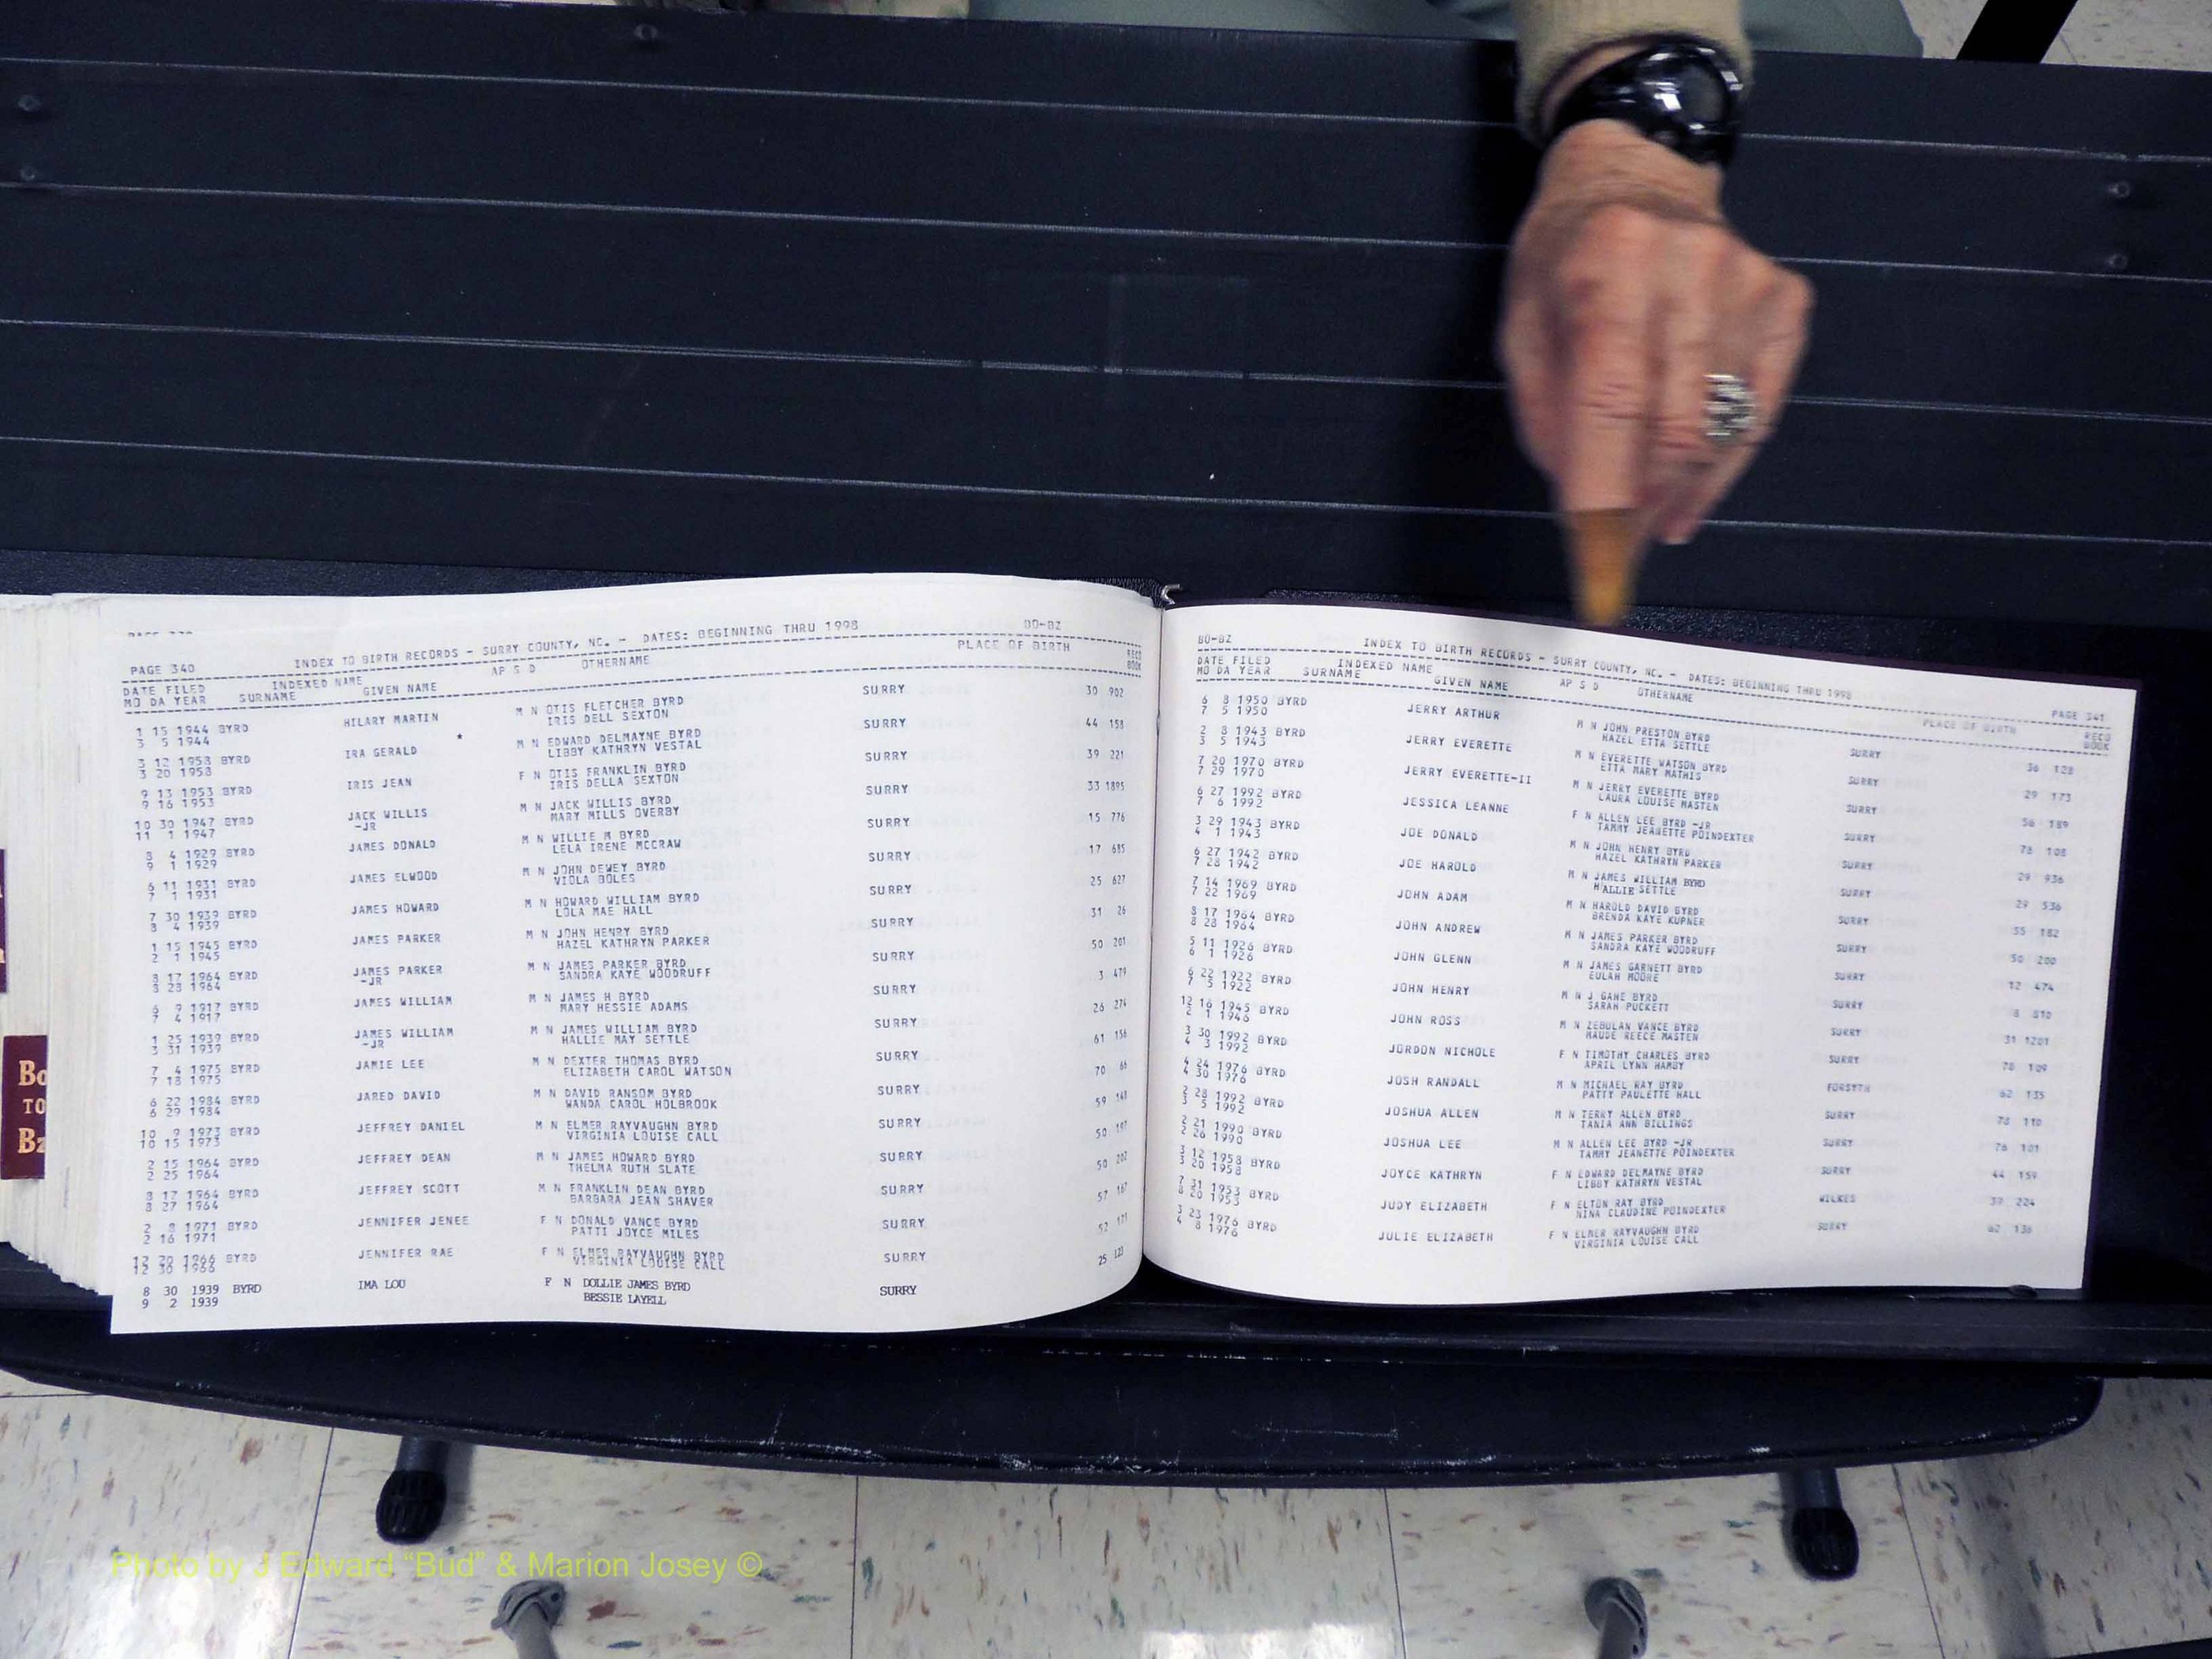 PAGE 340 INDEX TO BIRTH RECORDS - SURRY COUNTY, NC. - DATES: BEGINNING THRU 1998 BO-BZ
DATE FILED INDEXED NAME AP S D OTHERNAME PLACE OF BIRTH RECD
MO DA YEAR SURNAME GIVEN NAME BOOK
1 15 1944 BYRD HILARY MARTIN M N OTIS FLETCHER BYRD SURRY 30 902
3 5 1944 IRIS DELL SEXTON
3 12 1958 BYRD IRA GERALD * M N EDWARD DELMAYNE BYRD SURRY 44 158
3 20 1958 LIBBY KATHRYN VESTAL
9 13 1953 BYRD IRIS JEAN F N OTIS FRANKLIN BYRD SURRY 39 221
9 16 1953 IRIS DELLA SEXTON
10 30 1947 BYRD JACK WILLIS M N JACK WILLIS BYRD SURRY 33 1895
11 1 1947 -JR MARY MILLS OVERBY
8 4 1929 BYRD JAMES DONALD M N WILLIE M BYRD SURRY 15 776
9 1 1929 LELA IRENE MCCRAW
6 11 1931 BYRD JAMES ELWOOD M N JOHN DEWEY BYRD SURRY 17 685
7 1 1931 VIOLA BOLES
7 30 1939 BYRD JAMES HOWARD M N HOWARD WILLIAM BYRD SURRY 25 627
8 4 1939 LOLA MAE HALL
1 15 1945 BYRD JAMES PARKER M N JOHN HENRY BYRD SURRY 31 26
2 1 1945 HAZEL KATHRYN PARKER
8 17 1964 BYRD JAMES PARKER M N JAMES PARKER BYRD SURRY 50 201
8 28 1964 -JR SANDRA KAYE WOODRUFF
6 9 1917 BYRD JAMES WILLIAM M N JAMES H BYRD SURRY 3 479
7 4 1917 MARY HESSIE ADAMS
1 25 1939 BYRD JAMES WILLIAM M N JAMES WILLIAM BYRD SURRY 26 274
3 31 1939 -JR HALLIE MAY SETTLE
7 4 1975 BYRD JAMIE LEE M N DEXTER THOMAS BYRD SURRY 61 156
7 18 1975 ELIZABETH CAROL WATSON
6 22 1984 BYRD JARED DAVID M N DAVID RANSOM BYRD SURRY 70 66
6 29 1984 WANDA CAROL HOLBROOK
10 9 1973 BYRD JEFFREY DANIEL M N ELMER RAYVAUGHN BYRD SURRY 59
10 15 1973 VIRGINIA LOUISE CALL
2 15 1964 BYRD JEFFREY DEAN M N JAMES HOWARD BYRD SURRY 50 197
2 25 1964 THELMA RUTH SLATE
8 17 1964 BYRD JEFFREY SCOTT M N FRANKLIN DEAN BYRD SURRY 50 202
8 27 1964 BARBARA JEAN SHAVER
2 8 1971 BYRD JENNIFER JENEE F N DONALD VANCE BYRD SURRY 57 167
2 16 1971 PATTI JOYCE MILES
12 20 1966 BYRD JENNIFER RAE F N ELMER RAYVAUGHN BYRD SURRY 52 171
12 30 1966 VIRGINIA LOUISE CALL
8 30 1939 BYRD IMA LOU F N DOLLIE JAMES BYRD SURRY 25 123
9 2 1939 BESSIE LAYELL
BO-BZ INDEX TO BIRTH RECORDS - SURRY COUNTY, NC. - DATES: BEGINNING THRU 1998 PAGE 341
DATE FILED INDEXED NAME AP S D OTHERNAME PLACE OF BIRTH RECD
MO DA YEAR SURNAME GIVEN NAME BOOK
6 8 1950 BYRD JERRY ARTHUR M N JOHN PRESTON BYRD SURRY 36 128
7 5 1950 HAZEL ETTA SETTLE
2 8 1943 BYRD JERRY EVERETTE M N EVERETTE WATSON BYRD SURRY 29 173
3 5 1943 ETTA MARY MATHIS
7 20 1970 BYRD JERRY EVERETTE-II M N JERRY EVERETTE BYRD SURRY 56 189
7 29 1970 LAURA LOUISE MASTEN
6 27 1992 BYRD JESSICA LEANNE F N ALLEN LEE BYRD -JR SURRY 78 108
7 6 1992 TAMMY JEANETTE POINDEXTER
3 29 1943 BYRD JOE DONALD M N JOHN HENRY BYRD SURRY 29 936
4 1 1943 HAZEL KATHRYN PARKER
6 27 1942 BYRD JOE HAROLD M N JAMES WILLIAM BYRD SURRY 29 536
7 28 1942 HALLIE SETTLE
7 14 1969 BYRD JOHN ADAM M N HAROLD DAVID BYRD SURRY 55 182
7 22 1969 BRENDA KAYE KUPNER
8 17 1964 BYRD JOHN ANDREW M N JAMES PARKER BYRD SURRY 50 200
8 28 1964 SANDRA KAYE WOODRUFF
5 11 1926 BYRD JOHN GLENN M N JAMES GARNETT BYRD SURRY 12 474
6 1 1926 EULAH MOORE
6 22 1922 BYRD JOHN HENRY M N J GAHE BYRD SURRY 8 810
7 5 1922 SARAH PUCKETT
12 16 1945 BYRD JOHN ROSS M N ZEBULAN VANCE BYRD SURRY 31 1201
2 1 1946 MAUDE REECE MASTEN
3 30 1992 BYRD JORDON NICHOLE F N TIMOTHY CHARLES BYRD SURRY 78 109
4 3 1992 APRIL LYNN HAMBY
4 24 1976 BYRD JOSH RANDALL M N MICHAEL RAY BYRD FORSYTH 62 135
4 30 1976 PATTY PAULETTE HALL
2 28 1992 BYRD JOSHUA ALLEN M N TERRY ALLEN BYRD SURRY 78 110
3 5 1992 TANIA ANN BILLINGS
2 21 1990 BYRD JOSHUA LEE M N ALLEN LEE BYRD -JR SURRY 76 101
2 26 1990 TAMMY JEANETTE POINDEXTER
3 12 1958 BYRD JOYCE KATHRYN F N EDWARD DELMAYNE BYRD SURRY 44 159
3 20 1958 LIBBY KATHRYN VESTAL
7 31 1953 BYRD JUDY ELIZABETH F N ELTON RAY BYRD WILKES 39 224
8 20 1953 NINA CLAUDINE POINDEXTER
3 23 1976 BYRD JULIE ELIZABETH F N ELMER RAYVAUGHN BYRD SURRY 62 136
4 8 1976 VIRGINIA LOUISE CALL
Bo
TO
Bz
Photo by J Edward “Bud” & Marion Josey ©